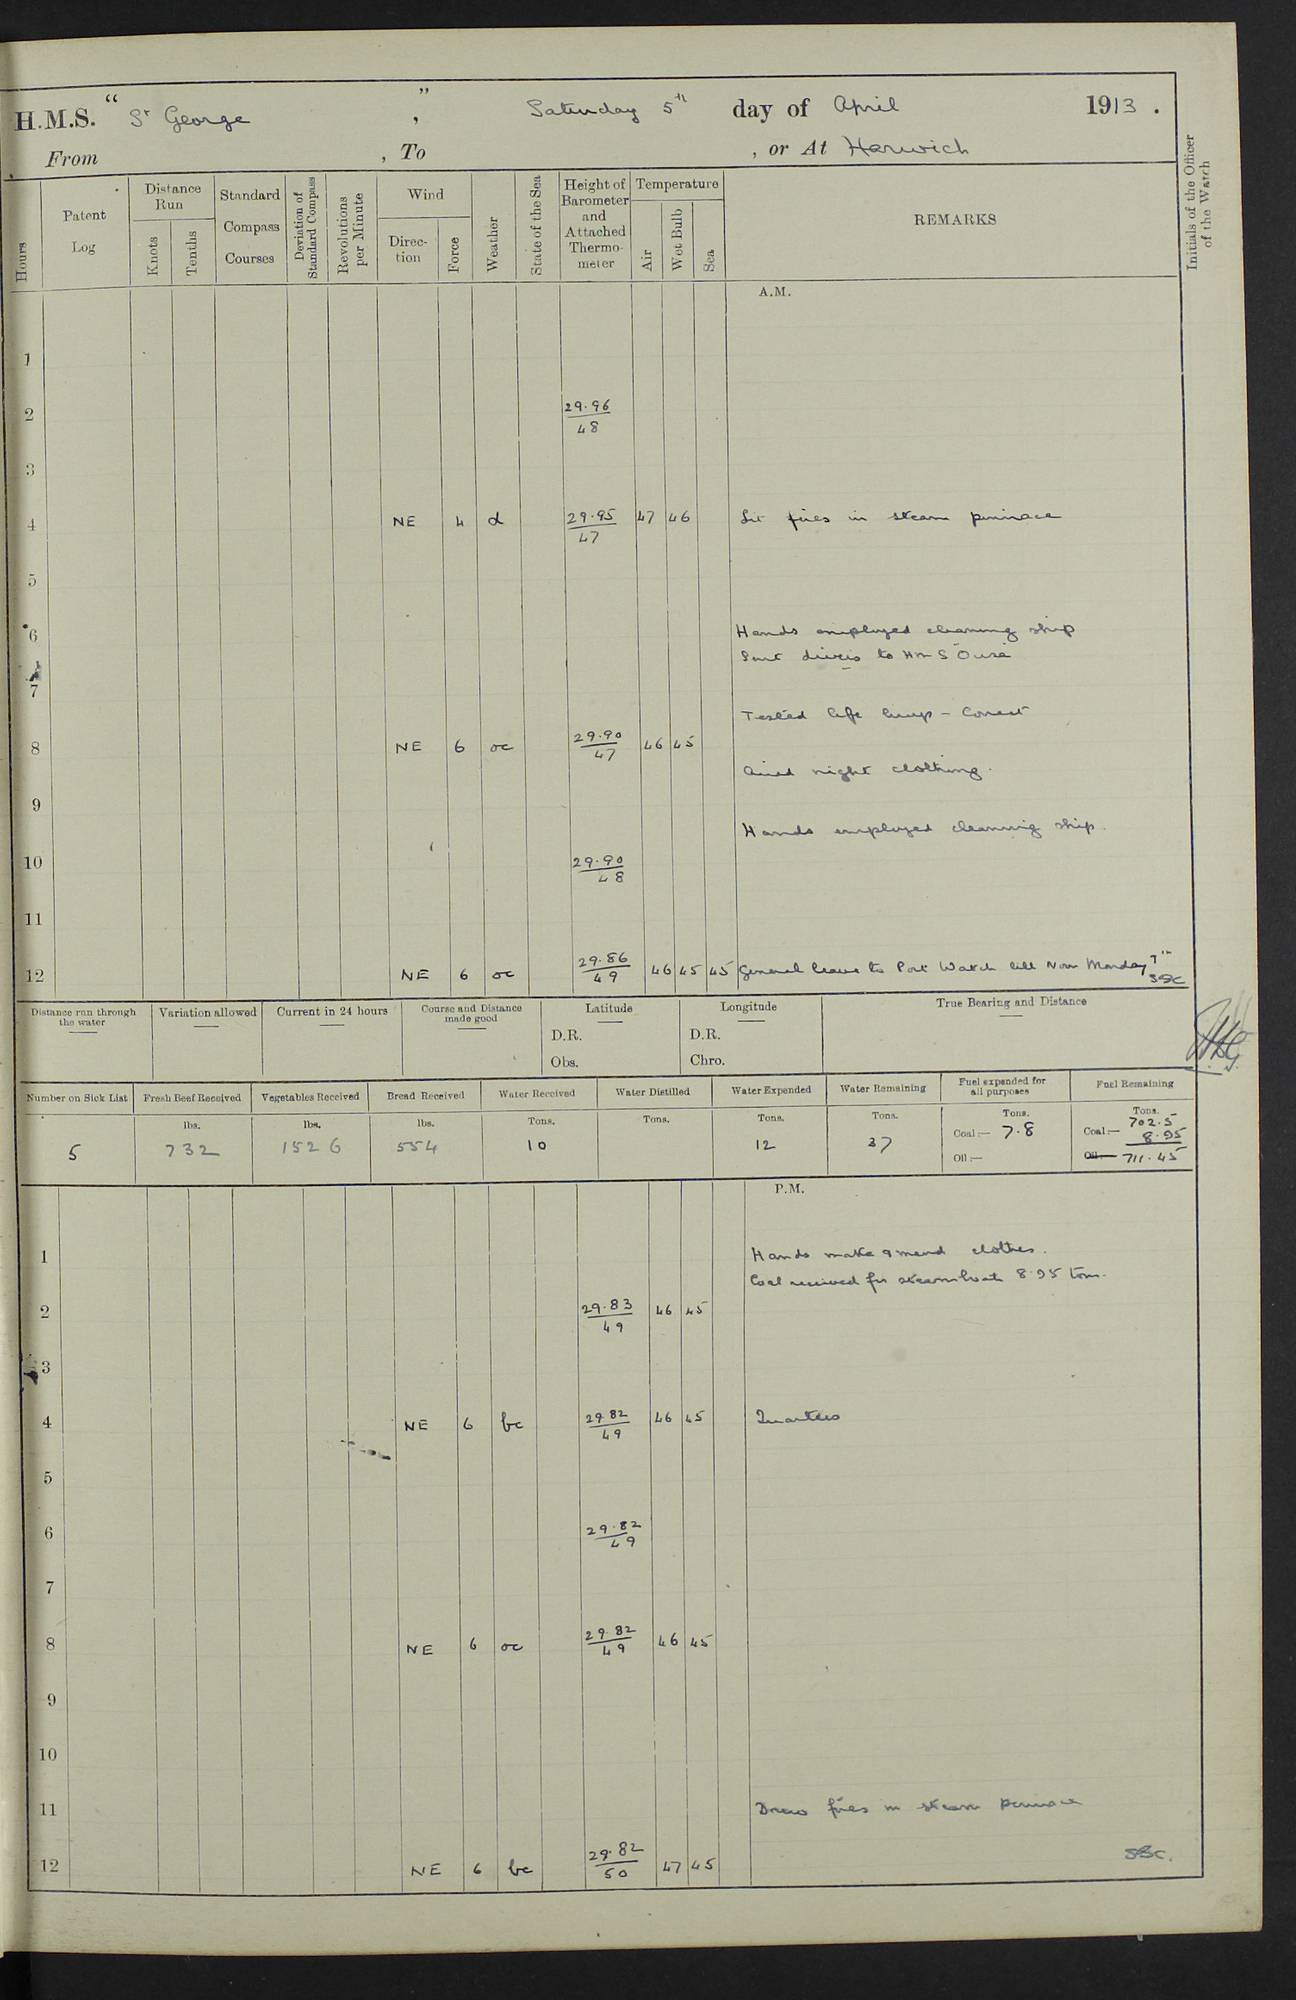 H.M.S. " St George ", Saturday 5th day of April 1913.
From , To , or At Harwich
Hours
Patent Log
Distance Run
Knots
Tenths
Standard Compass Courses
Deviation of Standard Compass
Revolutions per Minute
Wind
Direction
Force
Weather
State of the Sea
Height of Barometer and Attached Thermometer
Temperature
Air
Wet Bulb
Sea
REMARKS
Initials of the Officer of the Watch
A.M.
1
2 29.96/48
3
4 NE 4 d 29.95/47 47 46 Lit fires in steam pinnace
5
6 Hands employed cleaning ship
Sent divers to HMS Ouse
7
Tested life buoys - Correct
8 NE 6 oc 29.90/47 46 45
Aired night clothing.
9
Hands employed cleaning ship.
10 29.90/48
11
12 NE 6 oc 29.86/49 46 45 45 General leave to Port Watch till Noon Monday 7th
SBC
Distance run through the water
Variation allowed
Current in 24 hours
Course and Distance made good
Latitude
D.R.
Obs.
Longitude
D.R.
Chro.
True Bearing and Distance
Number on Sick List 5
Fresh Beef Received lbs. 732
Vegetables Received lbs. 1526
Bread Received lbs. 554
Water Received Tons. 10
Water Distilled Tons.
Water Expended Tons. 12
Water Remaining Tons. 37
Fuel expended for all purposes Tons. Coal:— 7.8 Oil:—
Fuel Remaining Tons. Coal:— 702.5
8.95
Oil:— 711.45
P.M.
1 Hands make & mend clothes.
Coal received for steamboats 8.95 tons.
2 29.83/49 46 45
3
4 NE 6 bc 29.82/49 46 45 Quarters
5
6 29.82/49
7
8 NE 6 oc 29.82/49 46 45
9
10
11 Drew fires in steam pinnace
12 NE 6 bc 29.82/50 47 45
SBC.